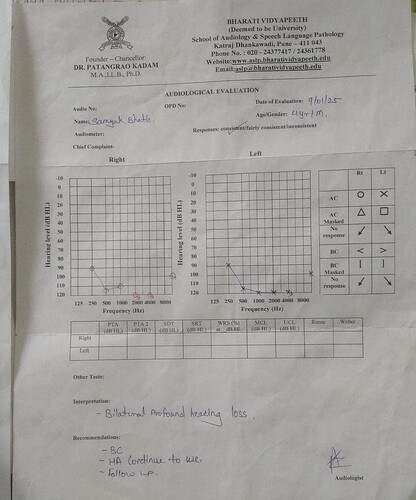 BHARATI VIDYAPEETH
(Deemed to be University)
School of Audiology & Speech Language Pathology
Katraj Dhankawadi, Pune – 411 043
Phone No. : 020 - 24377417 / 24361778
Website:www.aslp.bharatividyapeeth.edu
Email:aslp@bharatividyapeeth.edu
Founder – Chancellor:
DR. PATANGRAO KADAM
M.A.,LL.B., Ph.D.
AUDIOLOGICAL EVALUATION
Audio No: OPD No: Date of Evaluation: 9/01/25
Name: Age/Gender: 4yr/M.
Audiometer: Responses: consistent/fairly consistent/inconsistent
Chief Complaint-
Right Left
Hearing level (dB HL)
-10
0
10
20
30
40
50
60
70
80
90
100
110
120
125 250 500 1000 2000 4000 8000
Frequency (Hz)
Hearing level (dB HL)
-10
0
10
20
30
40
50
60
70
80
90
100
110
120
125 250 500 1000 2000 4000 8000
Frequency (Hz)
Rt Lt
AC
AC Masked
No response
BC < >
BC Masked
No response
PTA (dB HL) PTA 2 (dB HL) SDT (dB HL) SRT (dB HL) WRS (%) at__dB HL MCL (dB HL) UCL (dB HL) Rinne Weber
Right
Left
Other Tests:
Interpretation:
- Bilateral Profound hearing loss.
Recommendations:
- BC
- HA Continue to use.
- Follow up.
Audiologist